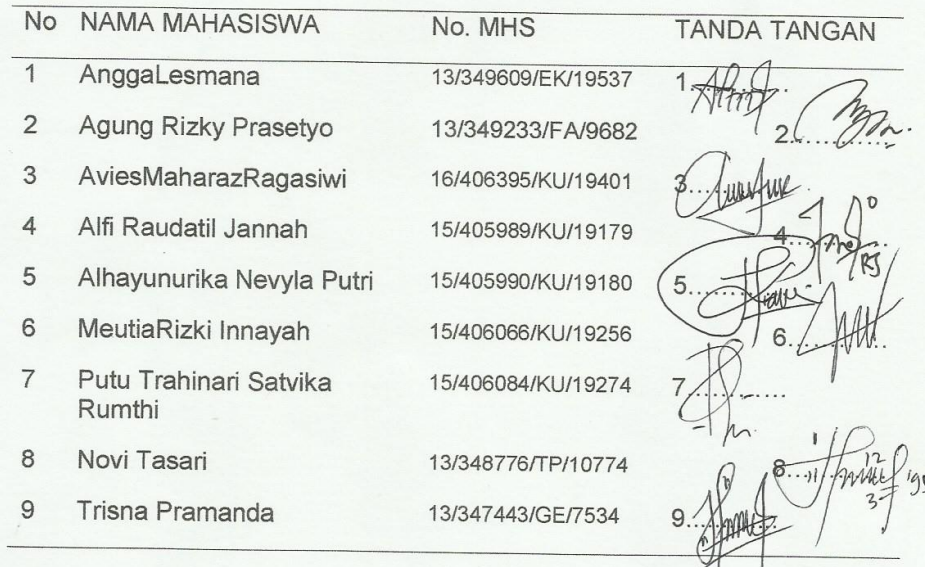 No NAMA MAHASISWA No. MHS TANDA TANGAN
1 AnggaLesmana 13/349609/EK/19537 1..............
2 Agung Rizky Prasetyo 13/349233/FA/9682 2..............
3 AviesMaharazRagasiwi 16/406395/KU/19401 3..............
4 Alfi Raudatil Jannah 15/405989/KU/19179 4..............
5 Alhayunurika Nevyla Putri 15/405990/KU/19180 5..............
6 MeutiaRizki Innayah 15/406066/KU/19256 6..............
7 Putu Trahinari Satvika 15/406084/KU/19274 7..............
Rumthi
8 Novi Tasari 13/348776/TP/10774 8..............
9 Trisna Pramanda 13/347443/GE/7534 9..............